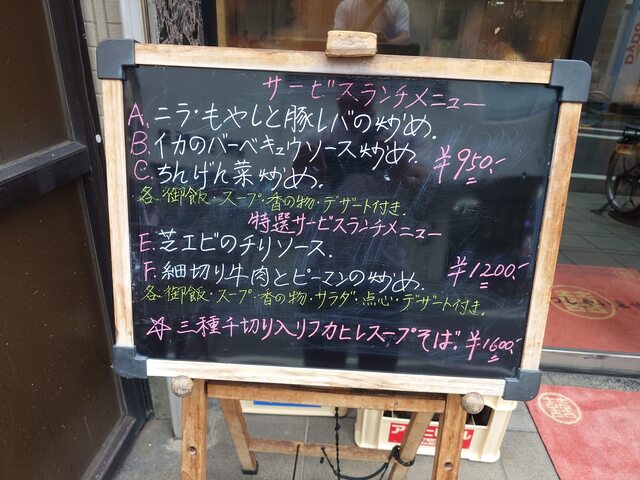 サービスランチメニュー
A. ニラ・もやしと豚レバの炒め.
B. イカのバーベキュウソース炒め.
C. ちんげん菜炒め. ¥950.-
各.御飯・スープ・香の物・デザート付き.
特選サービスランチメニュー
E. 芝エビのチリソース.
F. 細切り牛肉とピーマンの炒め. ¥1200.-
各.御飯・スープ・香の物・サラダ・点心・デザート付き.
☆ 三種千切り入りフカヒレスープそば. ¥1600.-